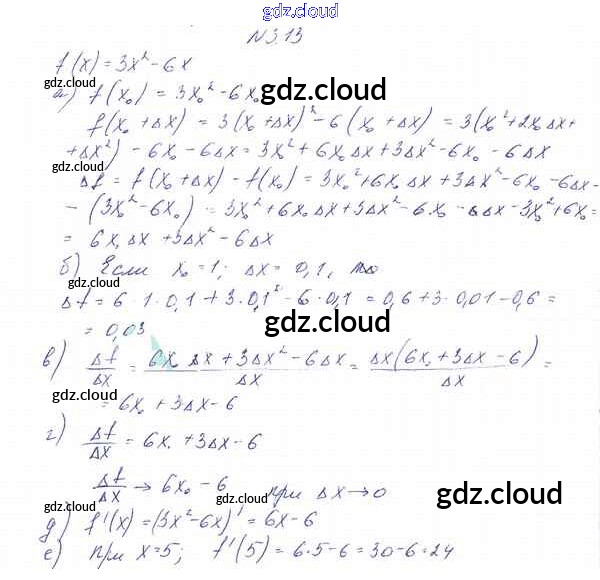 gdz.cloud
N 3.13
f(x) = 3x² - 6x
gdz.cloud
а) f(x₀) = 3x₀² - 6x₀
gdz.cloud
f(x₀ + Δx) = 3(x₀ + Δx)² - 6(x₀ + Δx) = 3(x₀² + 2x₀Δx +
+ Δx²) - 6x₀ - 6Δx = 3x₀² + 6x₀Δx + 3Δx² - 6x₀ - 6Δx
gdz.cloud
Δf = f(x₀ + Δx) - f(x₀) = 3x₀² + 6x₀Δx + 3Δx² - 6x₀ - 6Δx -
- (3x₀² - 6x₀) = 3x₀² + 6x₀Δx + 3Δx² - 6x₀ - 6Δx - 3x₀² + 6x₀ =
= 6x₀Δx + 3Δx² - 6Δx
б) Если x₀ = 1; Δx = 0,1, то
gdz.cloud
Δf = 6 · 1 · 0,1 + 3 · 0,1² - 6 · 0,1 = 0,6 + 3 · 0,01 - 0,6 =
gdz.cloud
= 0,03
в) Δf/Δx = (6x₀Δx + 3Δx² - 6Δx)/Δx = Δx(6x₀ + 3Δx - 6)/Δx =
gdz.cloud
= 6x₀ + 3Δx - 6
г) Δf/Δx = 6x₀ + 3Δx - 6
Δf/Δx → 6x₀ - 6 при Δx → 0
gdz.cloud
gdz.cloud
д) f'(x) = (3x² - 6x)' = 6x - 6
е) При x = 5; f'(5) = 6 · 5 - 6 = 30 - 6 = 24